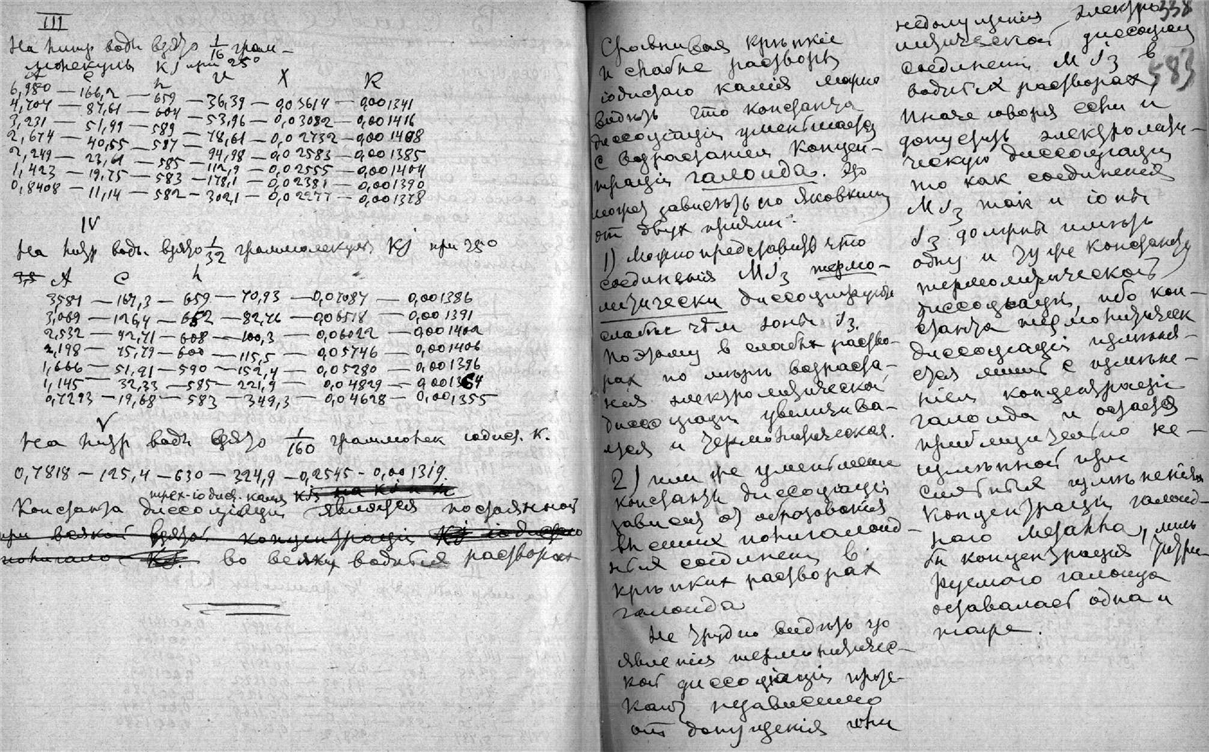 III
На литр воды взято 1/16 грам–
молекулы KJ при 25°
A C h u X K
6,980 — 166,2 — 659 — 36,39 — 0,03614 — 0,001341
4,704 — 87,61 — 604 — 53,96 — 0,03082 — 0,001416
3,231 — 51,99 — 589 — 78,61 — 0,02732 — 0,001408
2,674 — 40,55 — 587 — 94,98 — 0,02583 — 0,001385
2,249 — 23,61 — 585 — 112,9 — 0,02555 — 0,001404
1,423 — 19,75 — 583 — 178,1 — 0,02381 — 0,001390
0,8408 — 11,14 — 582 — 302,1 — 0,02277 — 0,001378
IV
На литр воды взято 1/32 граммолекулы KJ при 25°
A C h
3,581 — 167,3 — 659 — 70,93 — 0,07087 — 0,001386
3,069 — 126,4 — 652 — 82,76 — 0,06518 — 0,001391
2,532 — 92,71 — 608 — 100,3 — 0,06022 — 0,001402
2,198 — 75,79 — 600 — 115,5 — 0,05746 — 0,001406
1,666 — 51,91 — 590 — 152,4 — 0,05280 — 0,001396
1,145 — 32,33 — 585 — 221,9 — 0,04829 — 0,001364
0,7293 — 19,68 — 583 — 349,3 — 0,04628 — 0,001355
V
На литр воды взято 1/160 граммолек иодист. К.
0,7818 — 125,4 — 630 — 324,9 — 0,2545 — 0,001319.
трех-иодист. калия
Константа диссоциации является постоянной
при всякой взятой концентрации
во всяких водных растворах
338
583
Сравнивая крѣпкие
и слабые растворы
иодистаго калия можно
видѣть что константа
диссоциации уменьшается
с возрастанием концен–
трации галоида. Это
может зависѣть по Яковкину
от двух причин:
1) Можно представить что
соединения MJ3 термо–
литически диссоциируют
слабее чѣм ионы J3.
Поэтому в слабых раство–
рах по мѣрѣ возраста–
ния электролитической
диссоциации увеличива–
ется и термолитическая.
2) или же уменьшение
константы диссоциации
зависит от образования
высших полигалоид–
ных соединений в
крѣпких растворах
галоида
Не трудно видѣть что
явления термолитичес–
кой диссоциации проте–
кают независимо
от допущения или
недопущения электро–
литической диссоциации
соединений MJ3 в
водных растворах,
Иначе говоря если и
допустить электролити–
ческую диссоциацию
то как соединения
MJ3 так и ионы
J3 должны имѣть
одну и ту же константу
термолитической
диссоциации, ибо кон–
станта термолитической
диссоциации измѣня–
ется лишь с измѣне–
нием концентрации
галоида и остается
приблизительно не–
измѣнной при
измѣнении
концентрации галоид–
наго металла, лишь
бы концентрация
галоида
оставалась одна и
та же.